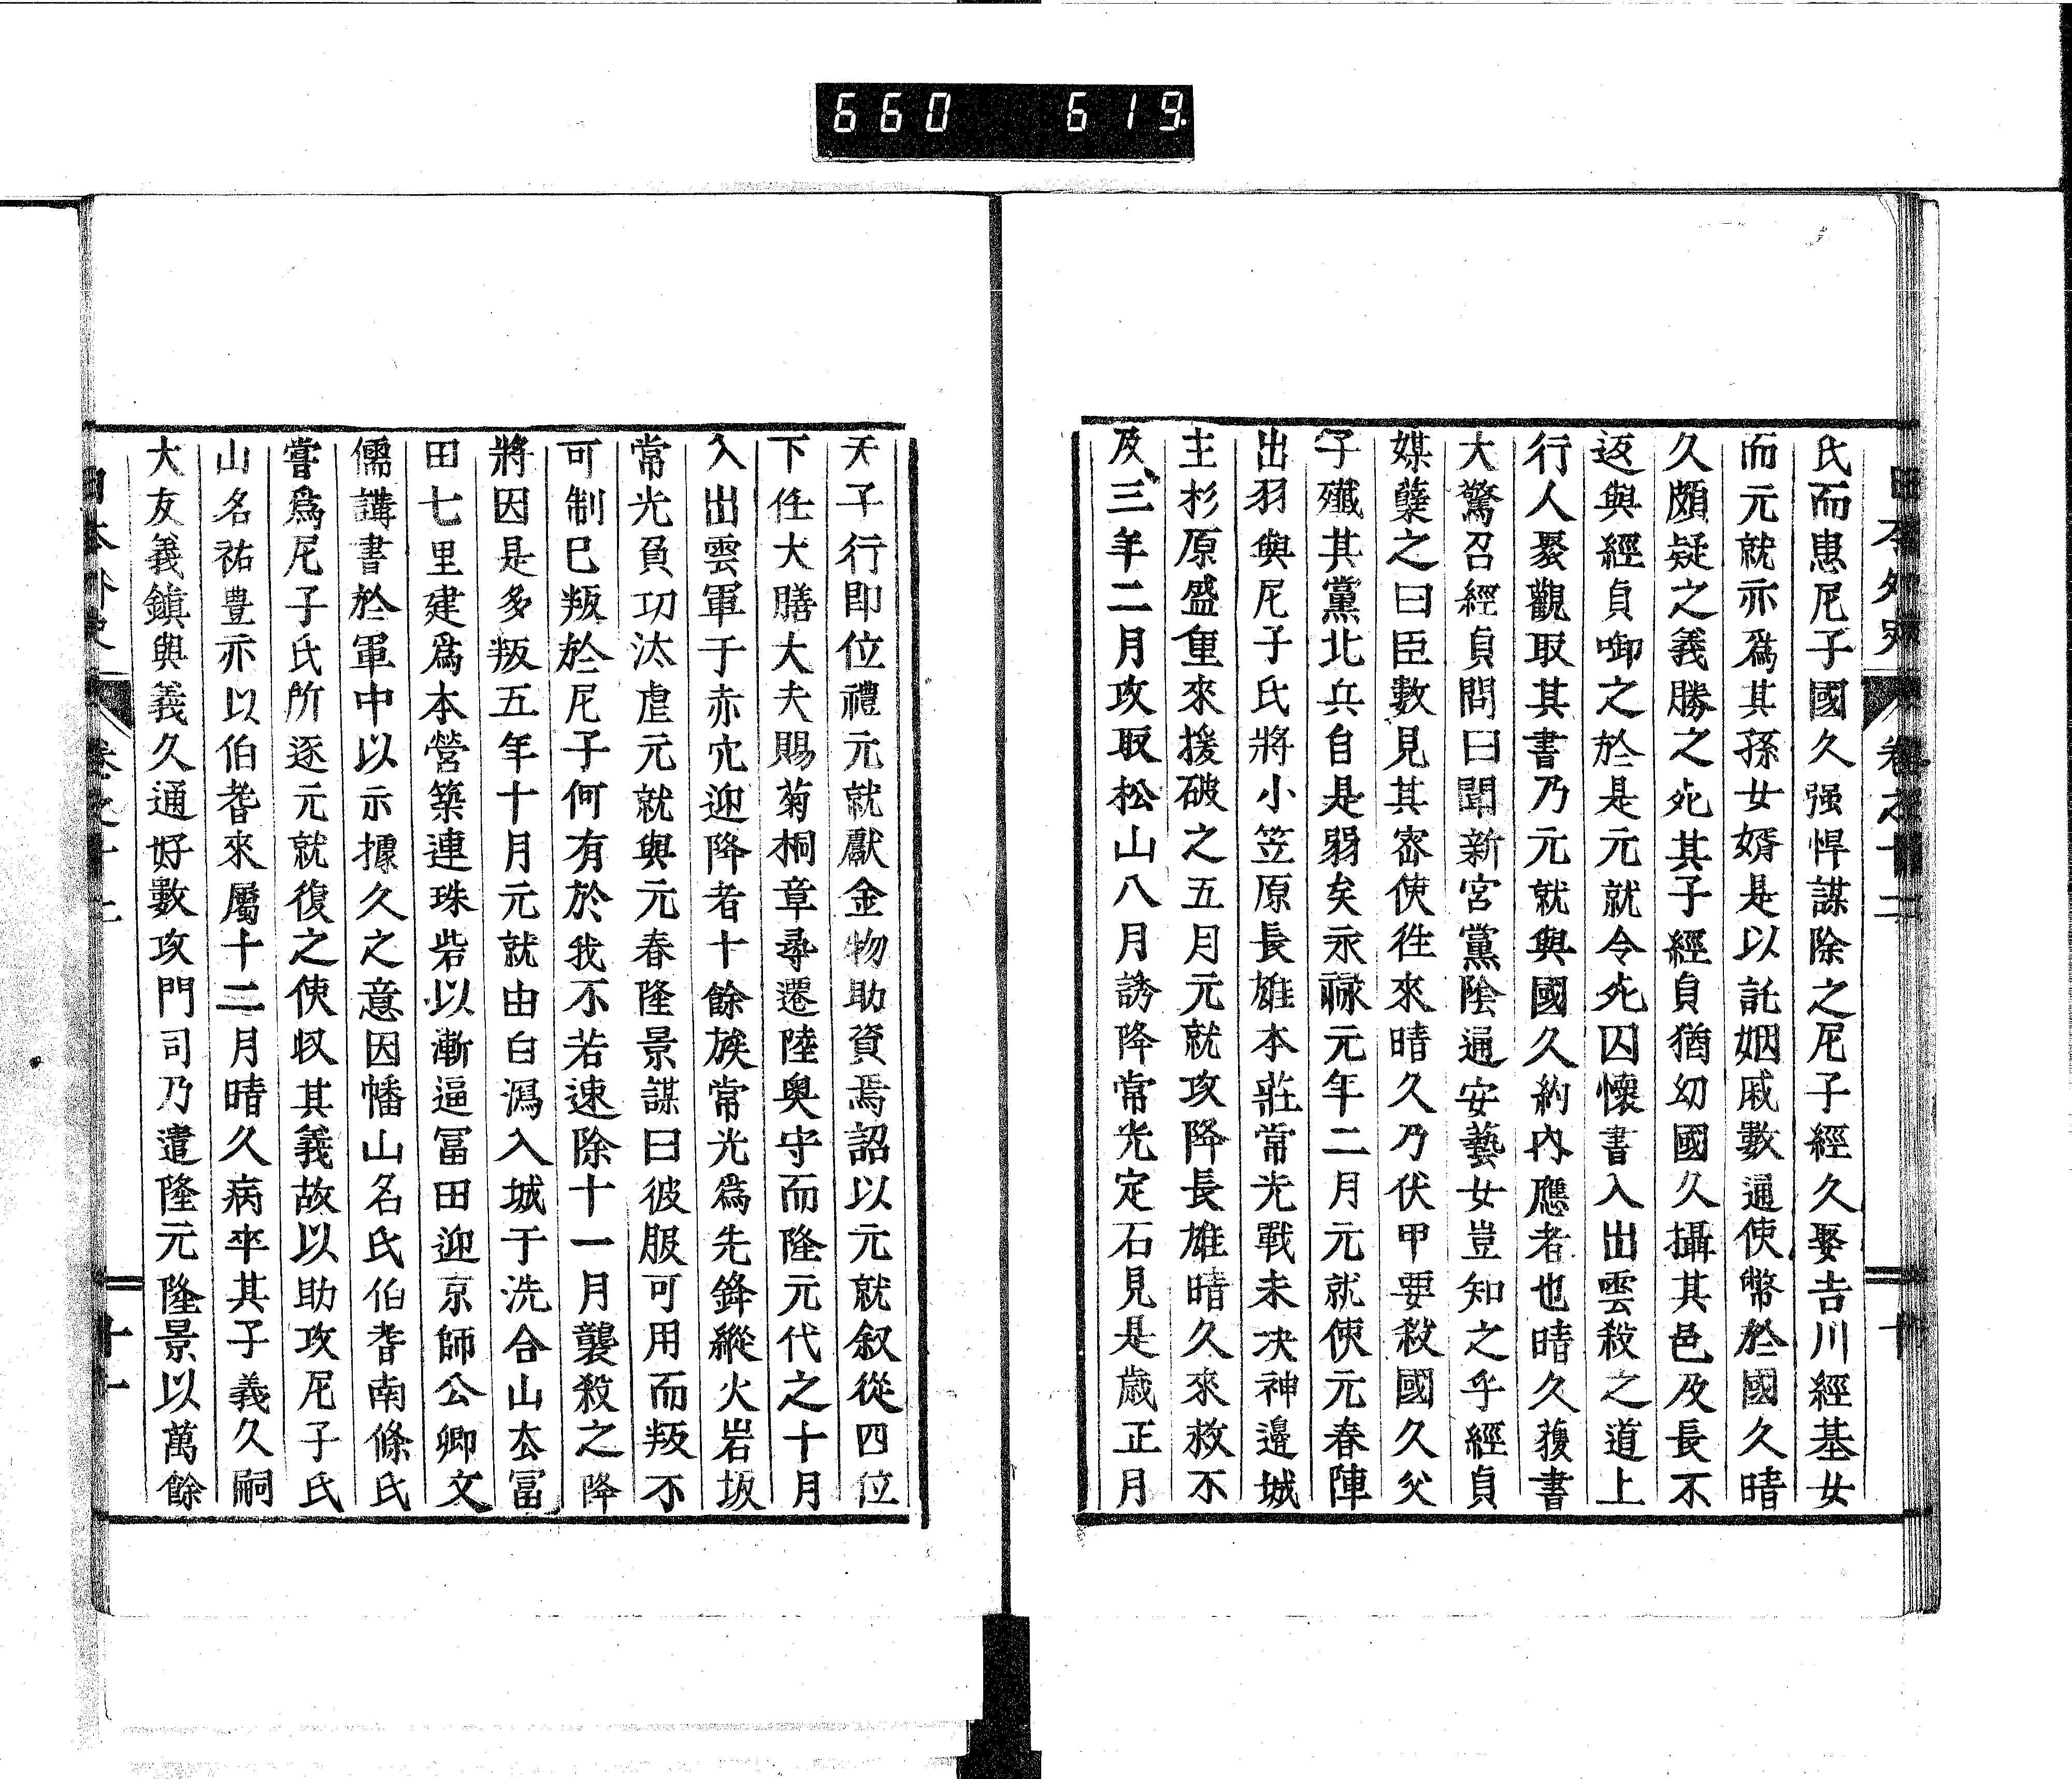 660 619
日本外史 卷之十二 十
氏而患尼子國久强悍謀除之尼子經久娶吉川經基女
而元就亦爲其孫女婿是以託姻戚數通使幣於國久晴
久頗疑之義勝之死其子經貞猶幼國久攝其邑及長不
返與經貞啣之於是元就令死囚懷書入出雲殺之道上
行人聚觀取其書乃元就與國久約內應者也晴久獲書
大驚召經貞問曰聞新宮黨陰通安藝女豈知之乎經貞
媒蘖之曰臣數見其密使往來晴久乃伏甲要殺國久父
子殲其黨北兵自是弱矣永祿元年二月元就使元春陣
出羽與尼子氏將小笠原長雄本莊常光戰未决神邊城
主杉原盛重來援破之五月元就攻降長雄晴久來救不
及三年二月攻取松山八月誘降常光定石見是歲正月
天子行即位禮元就獻金物助資焉詔以元就叙從四位
下任大膳大夫賜菊桐章尋遷陸奧守而隆元代之十月
入出雲軍于赤穴迎降者十餘族常光爲先鋒縱火岩坂
常光負功汰虐元就與元春隆景謀曰彼服可用而叛不
可制巳叛於尼子何有於我不若速除十一月襲殺之降
將因是多叛五年十月元就由白潟入城于洗合山去冨
田七里建爲本營築連珠砦以漸逼冨田迎京師公卿文
儒講書於軍中以示據久之意因幡山名氏伯耆南條氏
嘗爲尼子氏所逐元就復之使収其義故以助攻尼子氏
山名祐豊亦以伯耆來屬十二月晴久病卒其子義久嗣
大友義鎮與義久通好數攻門司乃遣隆元隆景以萬餘
日本外史 卷之十二 十一